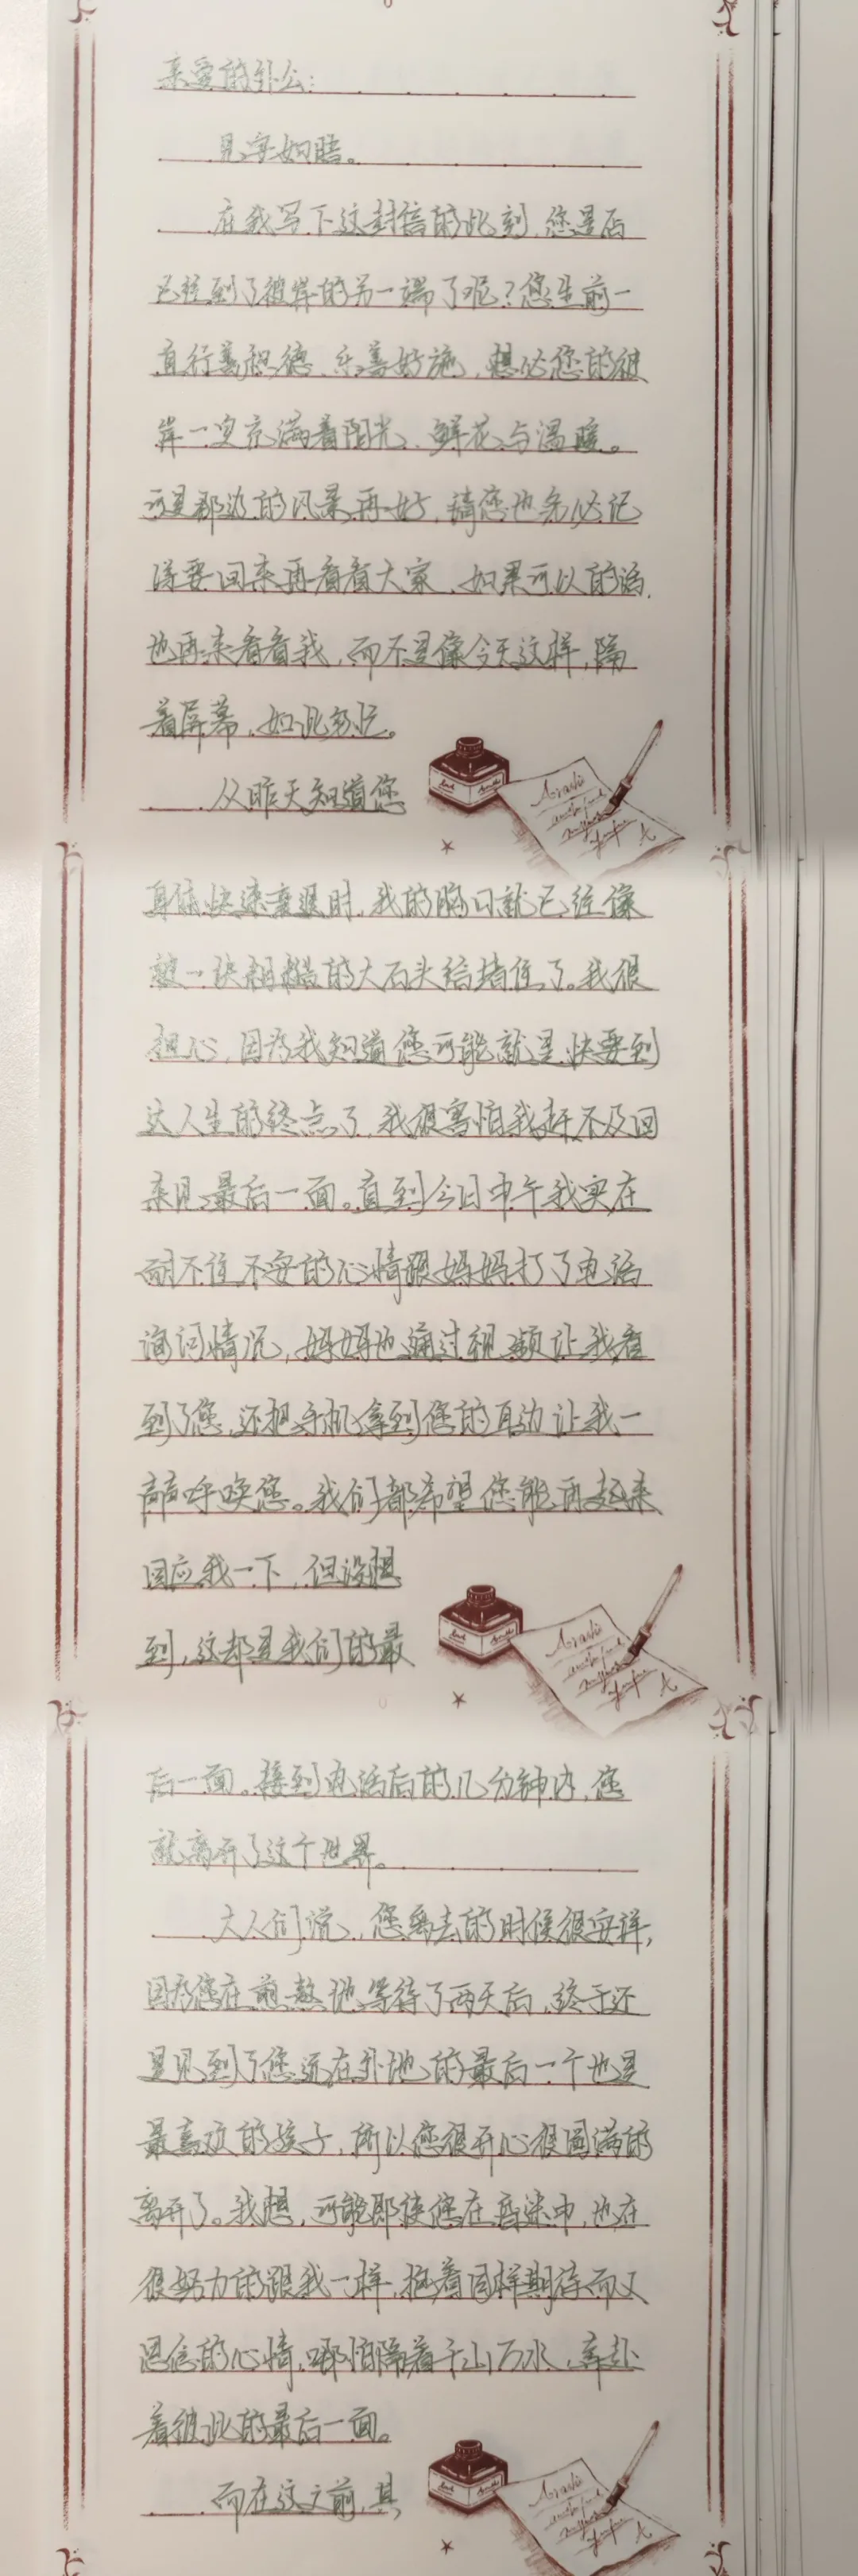 亲爱的外公：
见字如晤。
在我写下这封信的此刻，您是否
已经到了彼岸的另一端了呢？您生前一
直行善积德、乐善好施，想必您的彼
岸一定充满着阳光、鲜花与温暖。
可是那边的风景再好，请您也务必记
得要回来再看看大家，如果可以的话，
也再来看看我，而不是像今天这样，隔
着屏幕，如此匆忙。
从昨天知道您
身体快速衰退时，我的胸口就已经像
被一块粗糙的大石头给堵住了。我很
担心，因为我知道您可能就是快要到
达人生的终点了，我很害怕我赶不及回
来见最后一面。直到今日中午我实在
耐不住不安的心情跟妈妈打了电话
询问情况，妈妈也通过视频让我看
到了您，还把手机拿到您的耳边让我一
声声呼唤您。我们都希望您能再起来
回应我一下，但没想
到，这却是我们的最
后一面。接到电话后的几分钟内，您
就离开了这个世界。
大人们说，您离去的时候很安详，
因为您在煎熬地等待了两天后，终于还
是见到了您远在外地的最后一个也是
最喜欢的孩子，所以您很开心很圆满的
离开了。我想，可能即使您在昏迷中，也在
很努力的跟我一样，抱着同样期待而又
的心情，哪怕隔着千山万水，奔赴
着彼此的最后一面。
而在这之前，其
Arashi